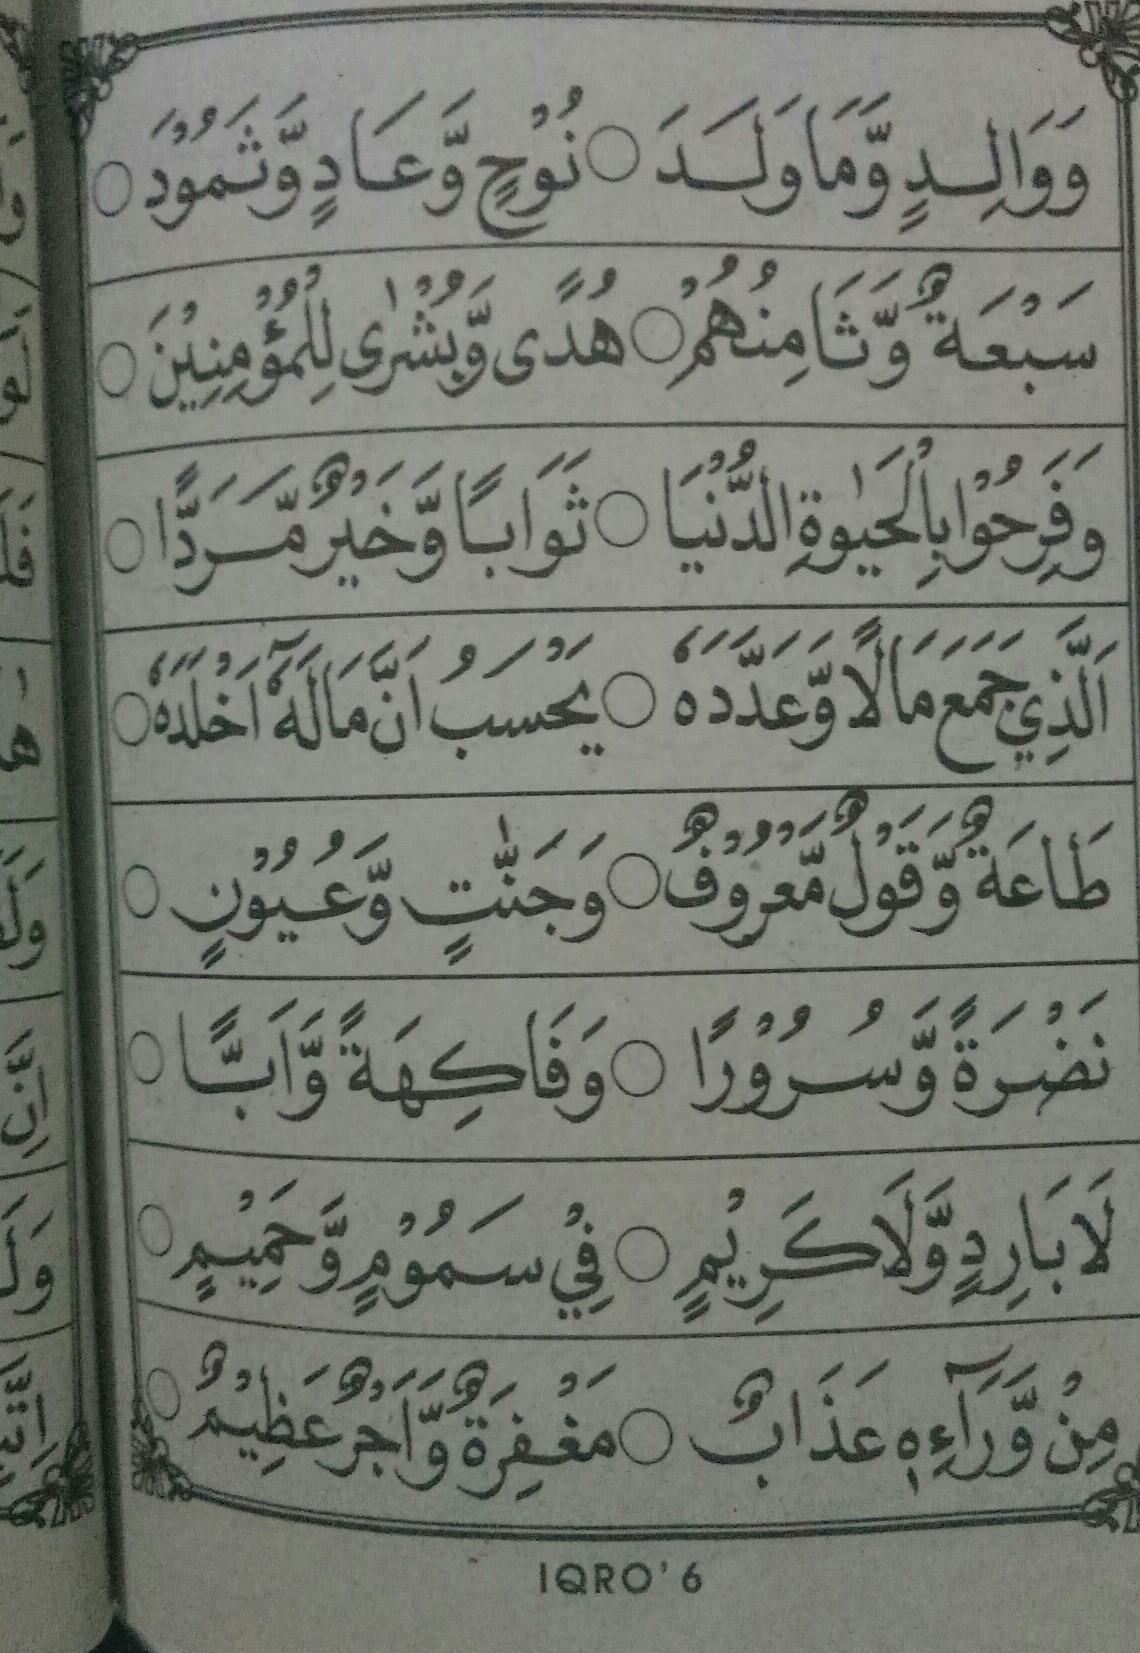 وَوَالِدٍ وَّمَا وَلَدَ ○ نُوْحٍ وَّعَادٍ وَّثَمُوْدَ ○
سَبْعَةٌ وَّثَامِنُهُمْ ○ هُدًى وَّبُشْرٰى لِلْمُؤْمِنِيْنَ ○
وَفَرِحُوْا بِالْحَيٰوةِ الدُّنْيَا ○ ثَوَابًا وَّخَيْرٌ مَّرَدًّا ○
اَلَّذِيْ جَمَعَ مَالًا وَّعَدَّدَهٗ ○ يَحْسَبُ اَنَّ مَالَهٗٓ اَخْلَدَهٗ ○
طَاعَةٌ وَّقَوْلٌ مَّعْرُوْفٌ ○ وَجَنّٰتٍ وَّعُيُوْنٍ ○
نَضْرَةً وَّسُرُوْرًا ○ وَفَاكِهَةً وَّاَبًّا ○
لَا بَارِدٍ وَّلَا كَرِيْمٍ ○ فِيْ سَمُوْمٍ وَّحَمِيْمٍ ○
مِنْ وَّرَآءِهٖ عَذَابٌ ○ مَغْفِرَةٌ وَّاَجْرٌ عَظِيْمٌ ○
IQRO' 6